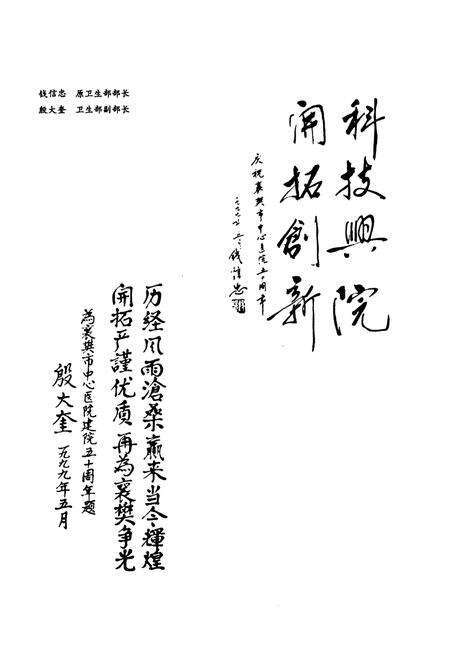 钱信忠　原卫生部部长
殷大奎　卫生部副部长
科技興院
開拓創新
庆祝襄樊市中心医院五十周年
钱信忠
历经风雨滄桑贏来当今輝煌
開拓严謹优质再為襄樊争光
為襄樊市中心医院建院五十周年題
殷大奎 一九九九年五月